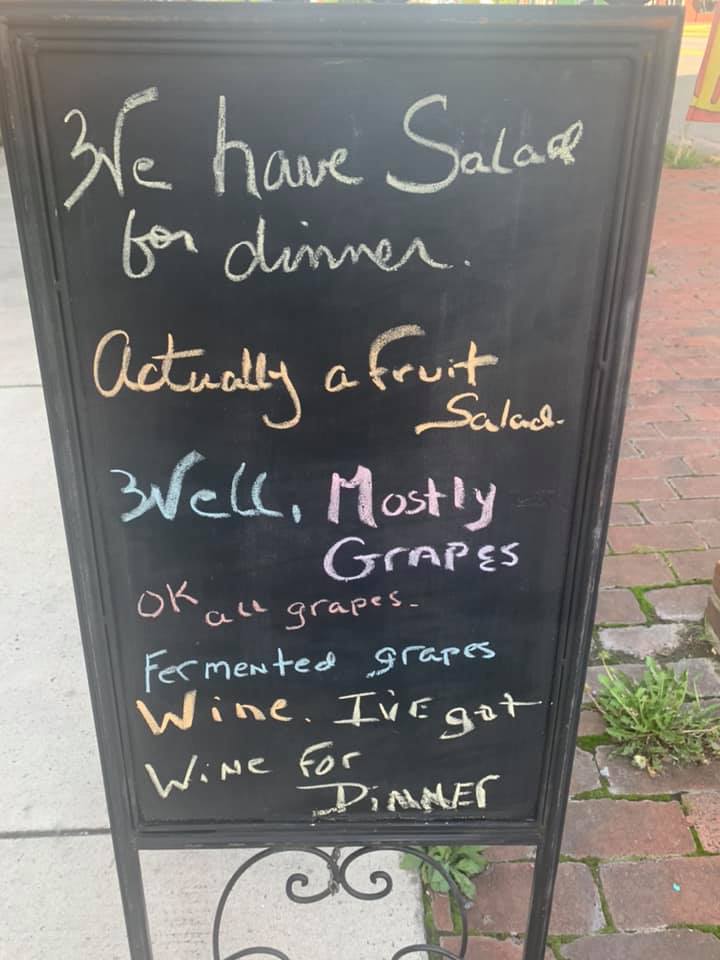 We have Salad
for dinner.
Actually a fruit
Salad.
Well, Mostly
GRAPES
OK all grapes.
Fermented grapes
Wine. I'VE got
WiNe For
DiNNER